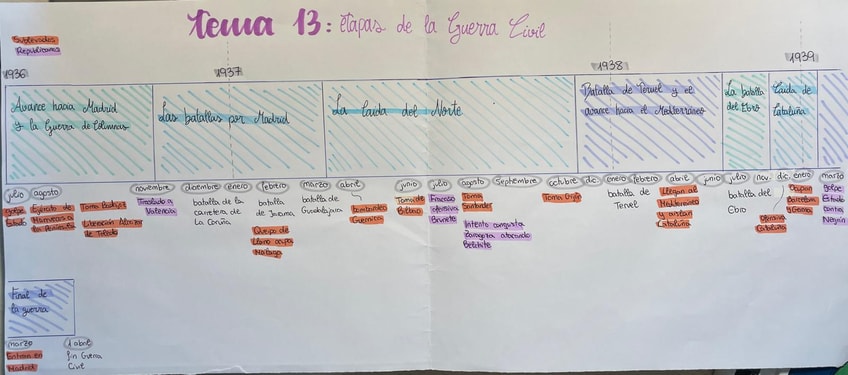 Tema 13: etapas de la Guerra Civil
Sublevados
Republicanos
1936
1937
1938
1939
Avance hacia Madrid
y la Guerra de Columnas
Las batallas por Madrid
La caída del Norte
Batalla de Teruel y el
avance hacia el Mediterráneo
La batalla
del Ebro
Caída de
Cataluña
julio
agosto
noviembre
diciembre
enero
febrero
marzo
abril
junio
julio
agosto
Septiembre
octubre
dic.
enero
febrero
abril
junio
julio
nov.
dic.
enero
marzo
golpe
Estado
Ejército de
Marruecos a
la Península
Toma Badajoz
Liberación Alcázar
de Toledo
Traslado a
Valencia
batalla de la
carretera de
La Coruña
batalla
de Jarama
Queipo de
Llano ocupa
Málaga
batalla de
Guadalajara
bombardeo
Guernica
Toma de
Bilbao
Fracaso
ofensiva
Brunete
Toma
Santander
Intento conquista
Zaragoza atacando
Belchite
Toma Gijón
batalla de
Teruel
Llegan al
Mediterráneo
y aíslan
Cataluña
batalla del
Ebro
Ofensiva
Cataluña
Ocupan
Barcelona
y Gerona
golpe
Estado
contra
Negrín
Final de
la guerra
marzo
1 abril
Entran en
Madrid
fin Guerra
Civil